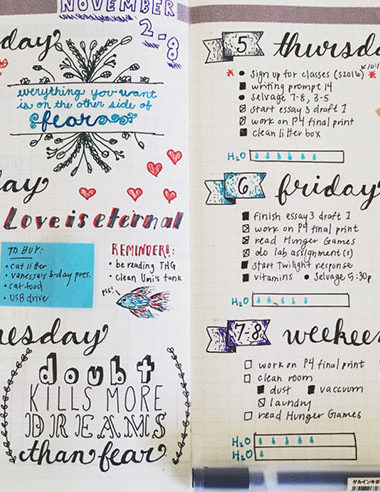 NOVEMBER
2-8
day
everything you want
is on the other side of
fear
day
Love is eternal
TO BUY:
• cat litter
• vanessa's b-day pres.
• cat food
• USB drive
REMINDER!!:
• be reading THG
• clean Uni's tank
pls!
nesday
doubt
KILLS MORE
DREAMS
than fear
5 thursda
• sign up for classes (S2016)
writing prompt 14
• Selvage 7-8, 3-5
start essay 3 draft 1
work on P4 final print
clean litter box
H2O
6 friday
finish essay 3 draft 1
work on P4 final print
read Hunger Games
do lab assignment(s)
start Twilight response
vitamins • Selvage 5:30p
H2O
7-8 weeken
work on P4 final print
clean room
dust vaccuum
laundry
read Hunger Games
H2O
H2O